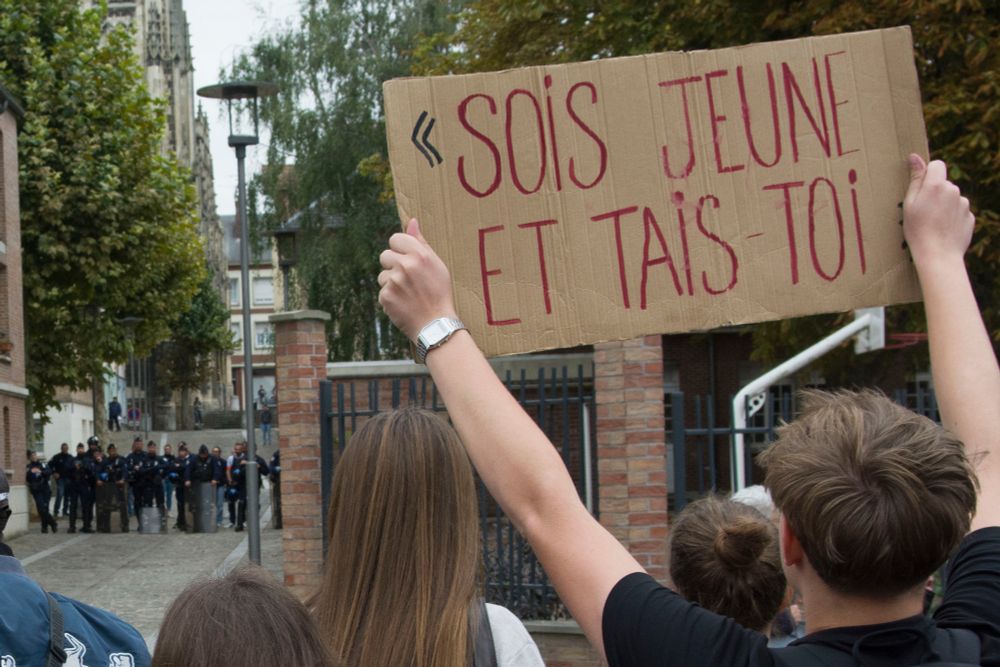 « SOiS JEUNE
ET TAiS-TOi